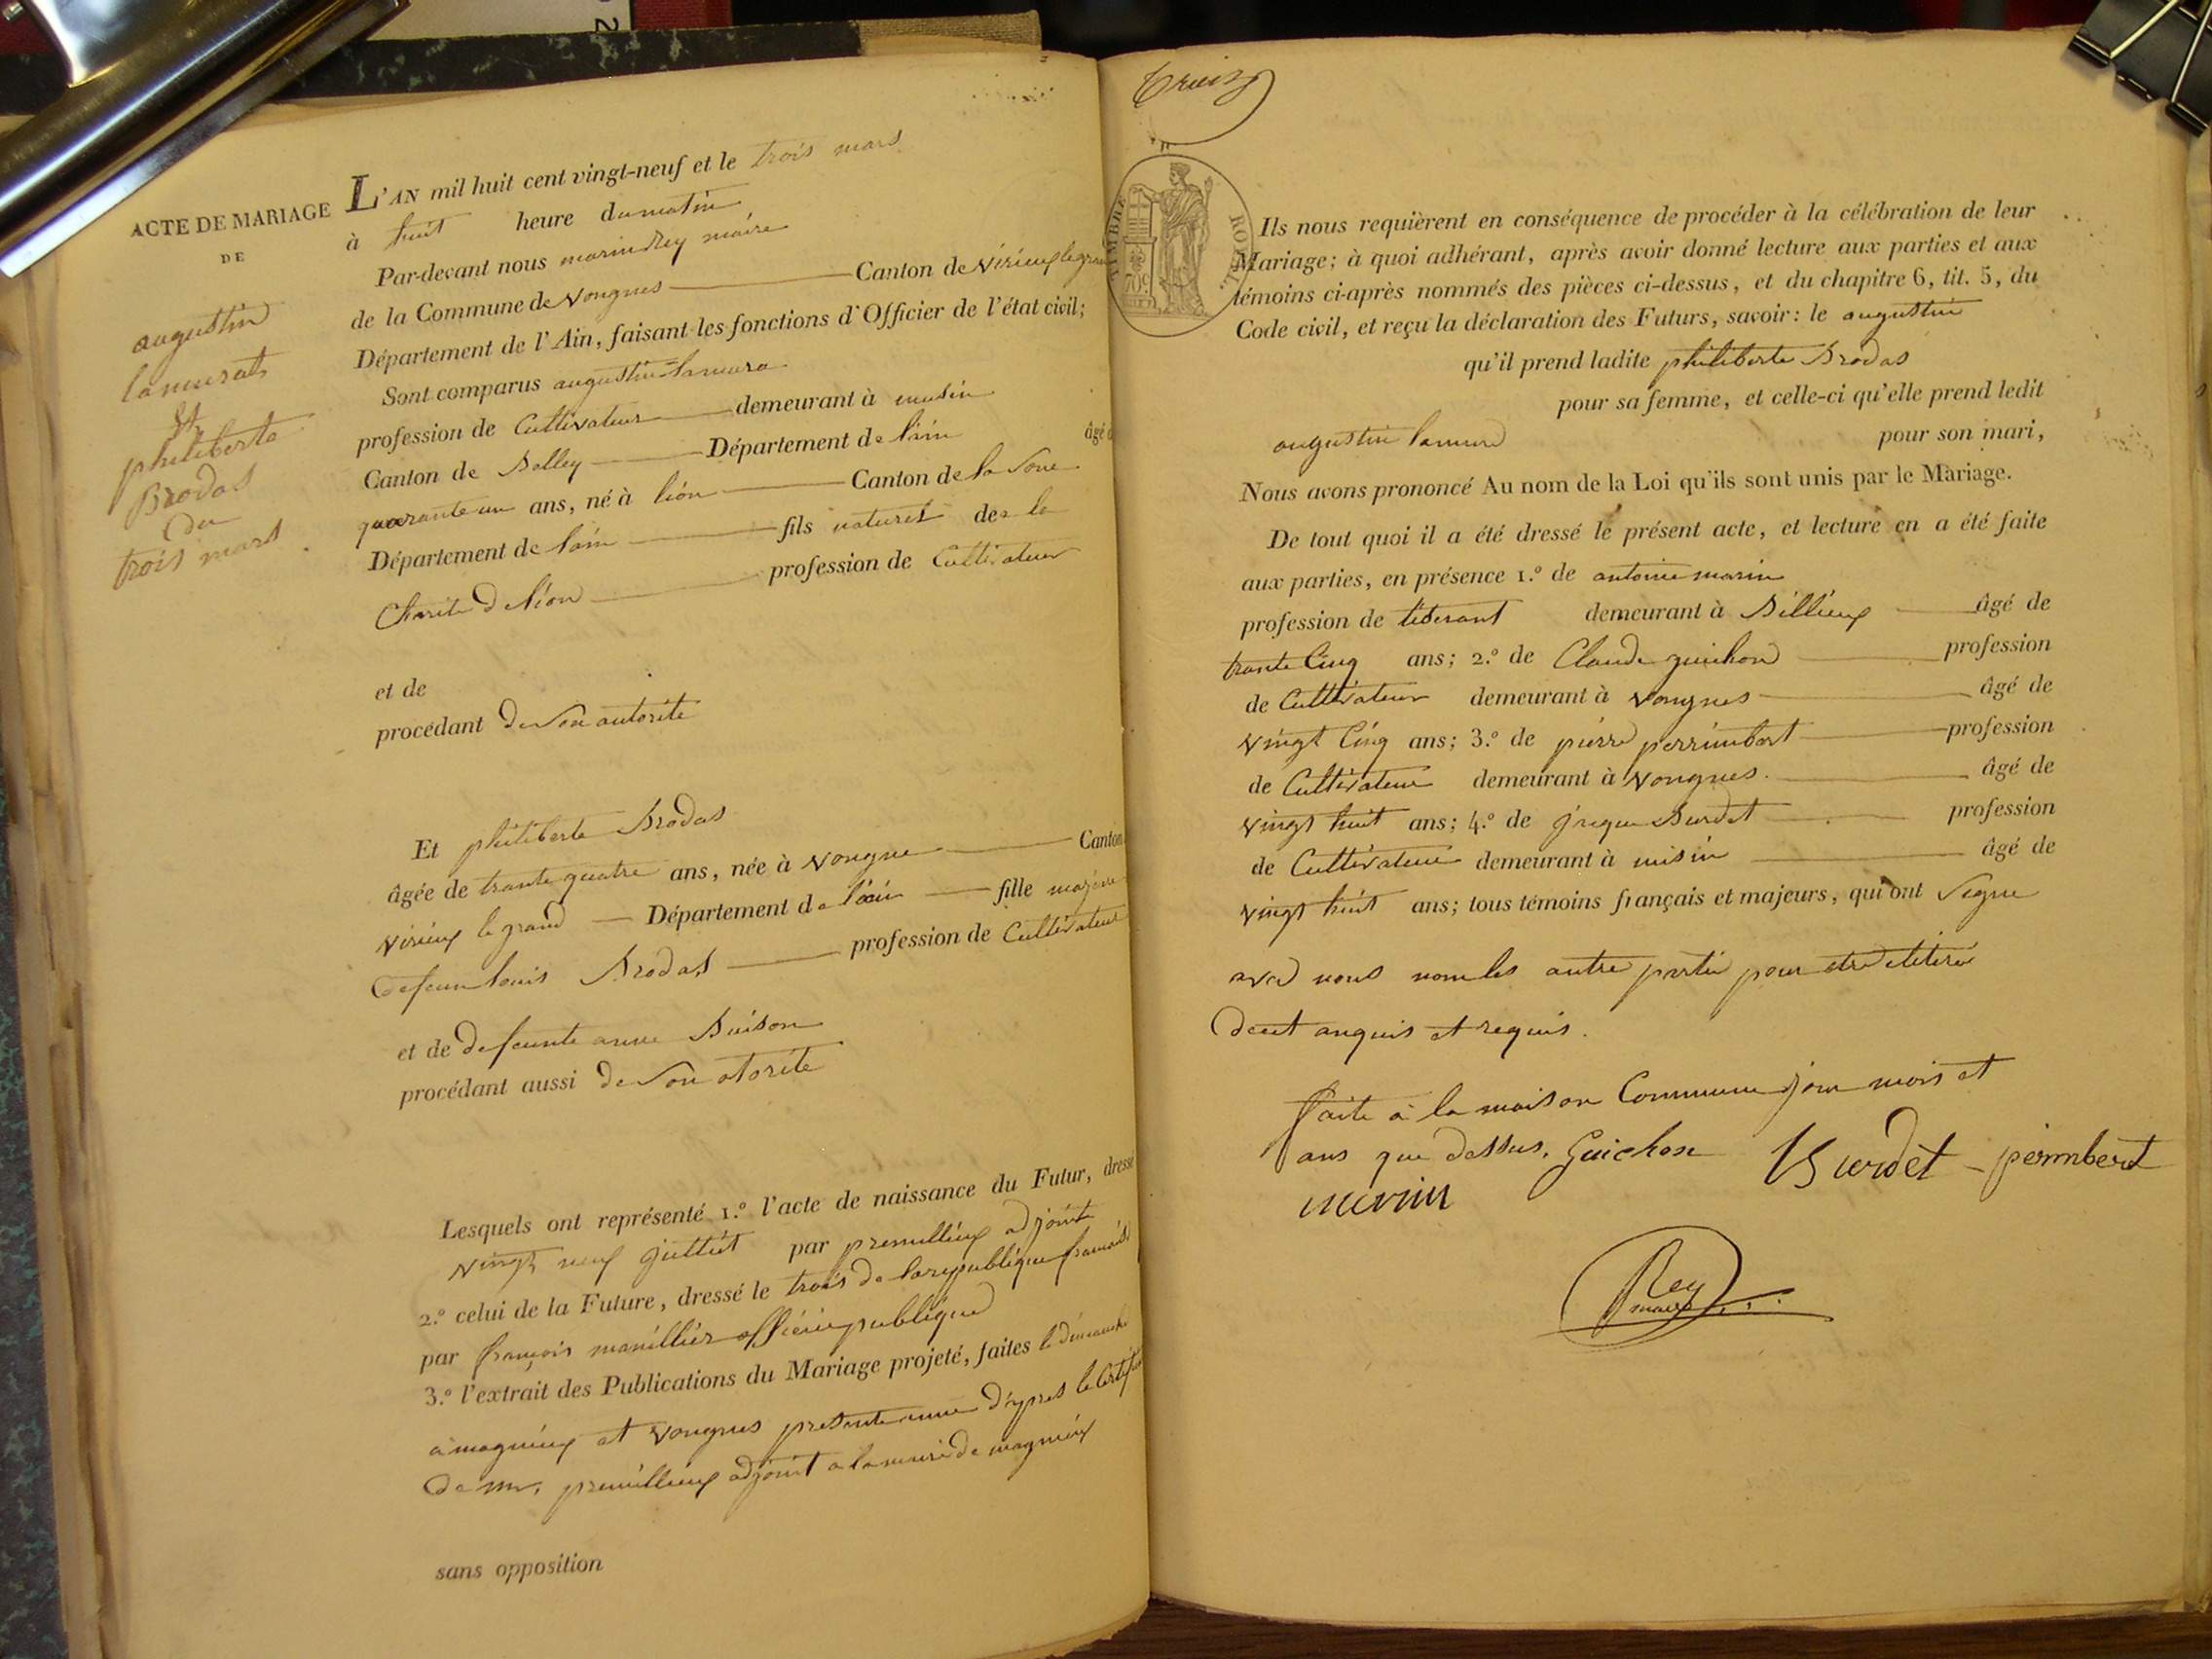 ACTE DE MARIAGE
DE
augustin
lamurat
et
philiberte
Brodas
du
trois mars
L'AN mil huit cent vingt-neuf et le trois mars
à huit heure du matin
Par-devant nous marin Rey maire
de la Commune de Vongnes Canton de Virieux le gran
Département de l'Ain, faisant les fonctions d'Officier de l'état civil;
Sont comparus augustin lamura
profession de Cultivateur demeurant à musin
Canton de Belley Département de l'ain âgé d
quarante un ans, né à lion Canton de la Sone
Département de l'ain fils naturel de la
Charite de lion profession de Cultivateur
et de
procédant de Son autorite
Et philiberte Brodas
âgée de trante quatre ans, née à Vongne Canton
Virieux le grand Département de l'ain fille majeure
defeun louis Brodas profession de Cultivateur
et de defeunte anne Buison
procédant aussi de Son otorite
Lesquels ont représenté 1.º l'acte de naissance du Futur, dressé
vingt neuf juilliet par premillieux adjoint
2.º celui de la Future, dressé le trois de la republique francaise
par françois manillier officier publique
3.º l'extrait des Publications du Mariage projeté, faites le dimanche
a magnieux et Vongnes presente anne d'apres le Certifi
de mr. premillieux adjoint a la mairie de magnieux
sans opposition
treize
TIMBRE ROYAL
70 c
Ils nous requièrent en conséquence de procéder à la célébration de leur
Mariage; à quoi adhérant, après avoir donné lecture aux parties et aux
témoins ci-après nommés des pièces ci-dessus, et du chapitre 6, tit. 5, du
Code civil, et reçu la déclaration des Futurs, savoir: le augustin
qu'il prend ladite philiberte Brodas
pour sa femme, et celle-ci qu'elle prend ledit
augustin lamura pour son mari,
Nous avons prononcé Au nom de la Loi qu'ils sont unis par le Mariage.
De tout quoi il a été dressé le présent acte, et lecture en a été faite
aux parties, en présence 1.º de antoine marin
profession de tiserant demeurant à Billieux âgé de
trante Cinq ans; 2.º de Claude guichon profession
de Cultivateur demeurant à Vongnes âgé de
vingt Cinq ans; 3.º de pierre perrimbert profession
de Cultivateur demeurant à Vongnes. âgé de
vingt huit ans; 4.º de Burdet profession
de Cultivateur demeurant à musin âgé de
vingt huit ans; tous témoins français et majeurs, qui ont Signe
avec nous non les autre partie pour etre
deut anquis et requis.
faite a la maison Commune jour mois et
ans que dessus. Guichon Burdet perimbert
marin
Rey
maire